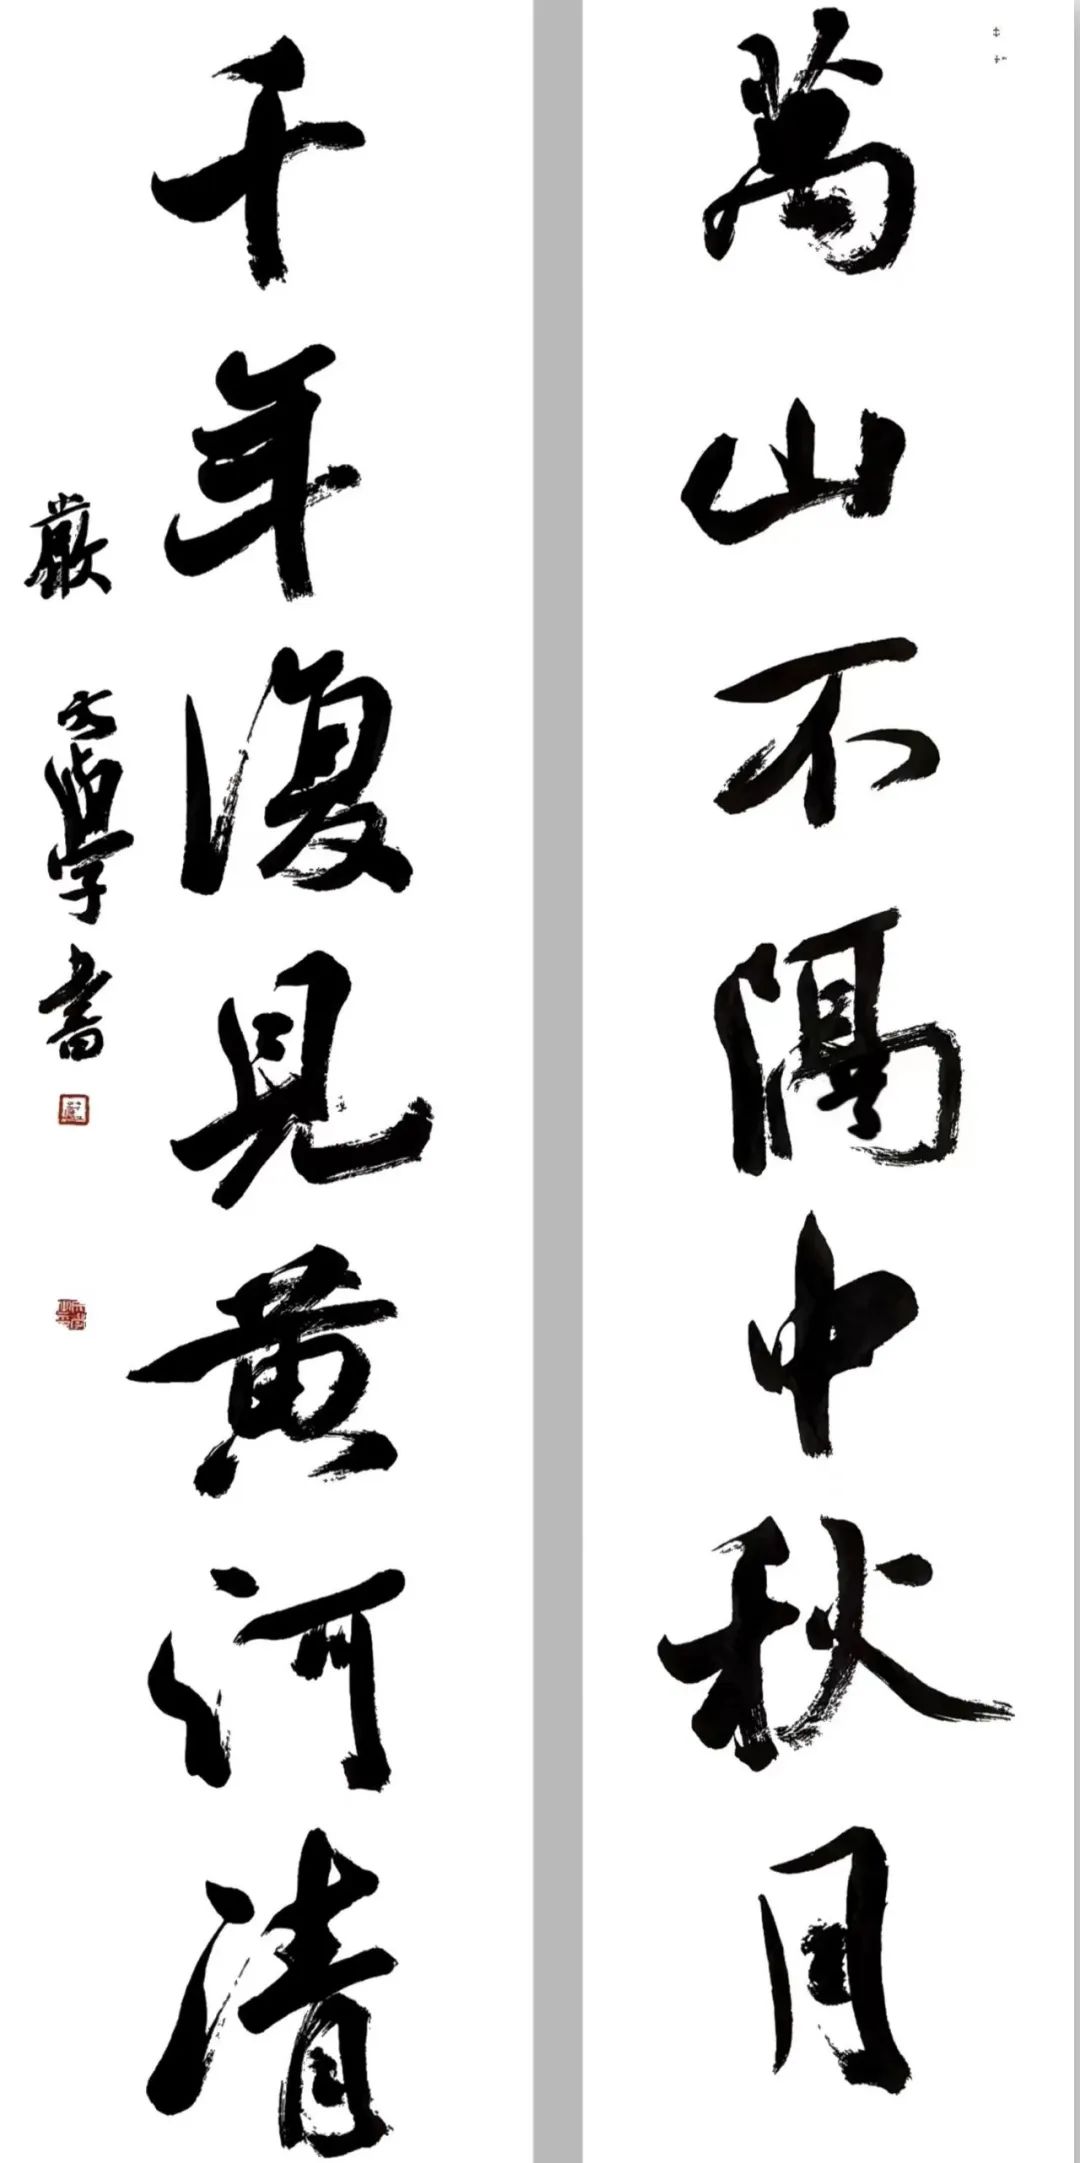 萬山不隔中秋月
千年復見黃河清
嚴 學書